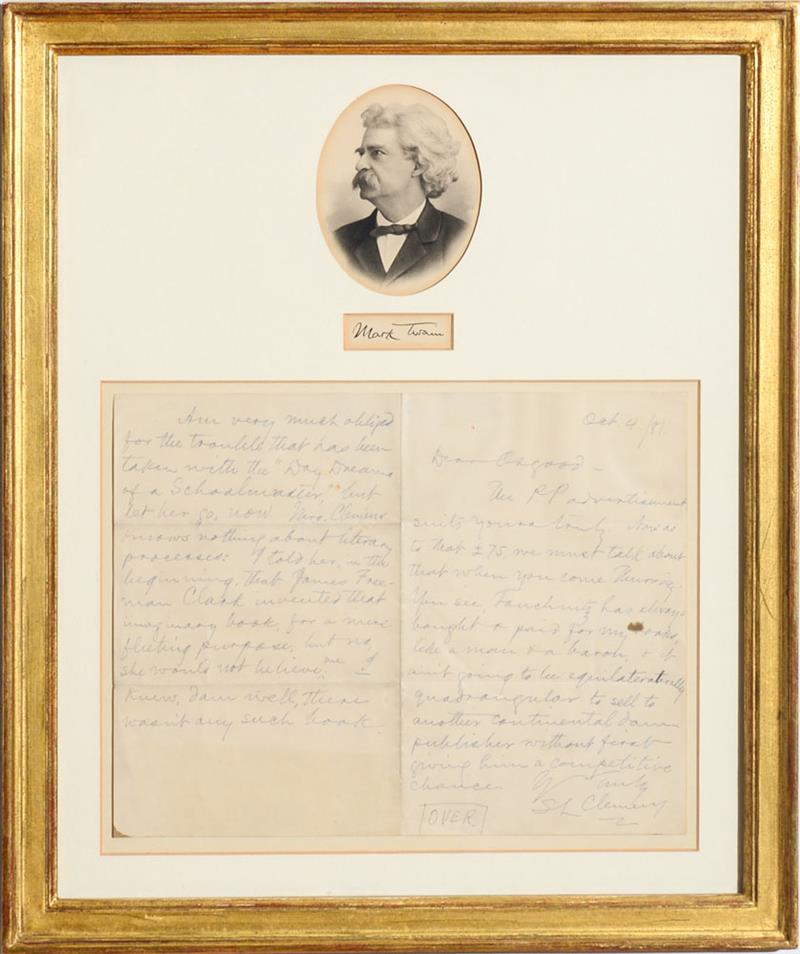 Mark Twain
Am very much obliged
for the trouble that has been
taken with the "Day Dreams
of a Schoolmaster," but
let her go, now. Mrs. Clemens
knows nothing about literary
processes: I told her, in the
beginning, that James Free-
man Clark invented that
imaginary book, for a mere
fleeting purpose; but no,
she would not believe me. I
knew, dam well, there
wasn't any such book.
Oct. 4/81
Dear Osgood —
The P&P advertisement
suits yours truly. Now as
to that £75 we must talk about
that when you come Thursday.
You see, Tauchnitz has always
bought & paid for my books,
like a man & a baron, & it
ain't going to be equilaterally
quadrangular to sell to
another continental dam
publisher without first
giving him a competitive
chance. Yrs Truly
SL Clemens
OVER